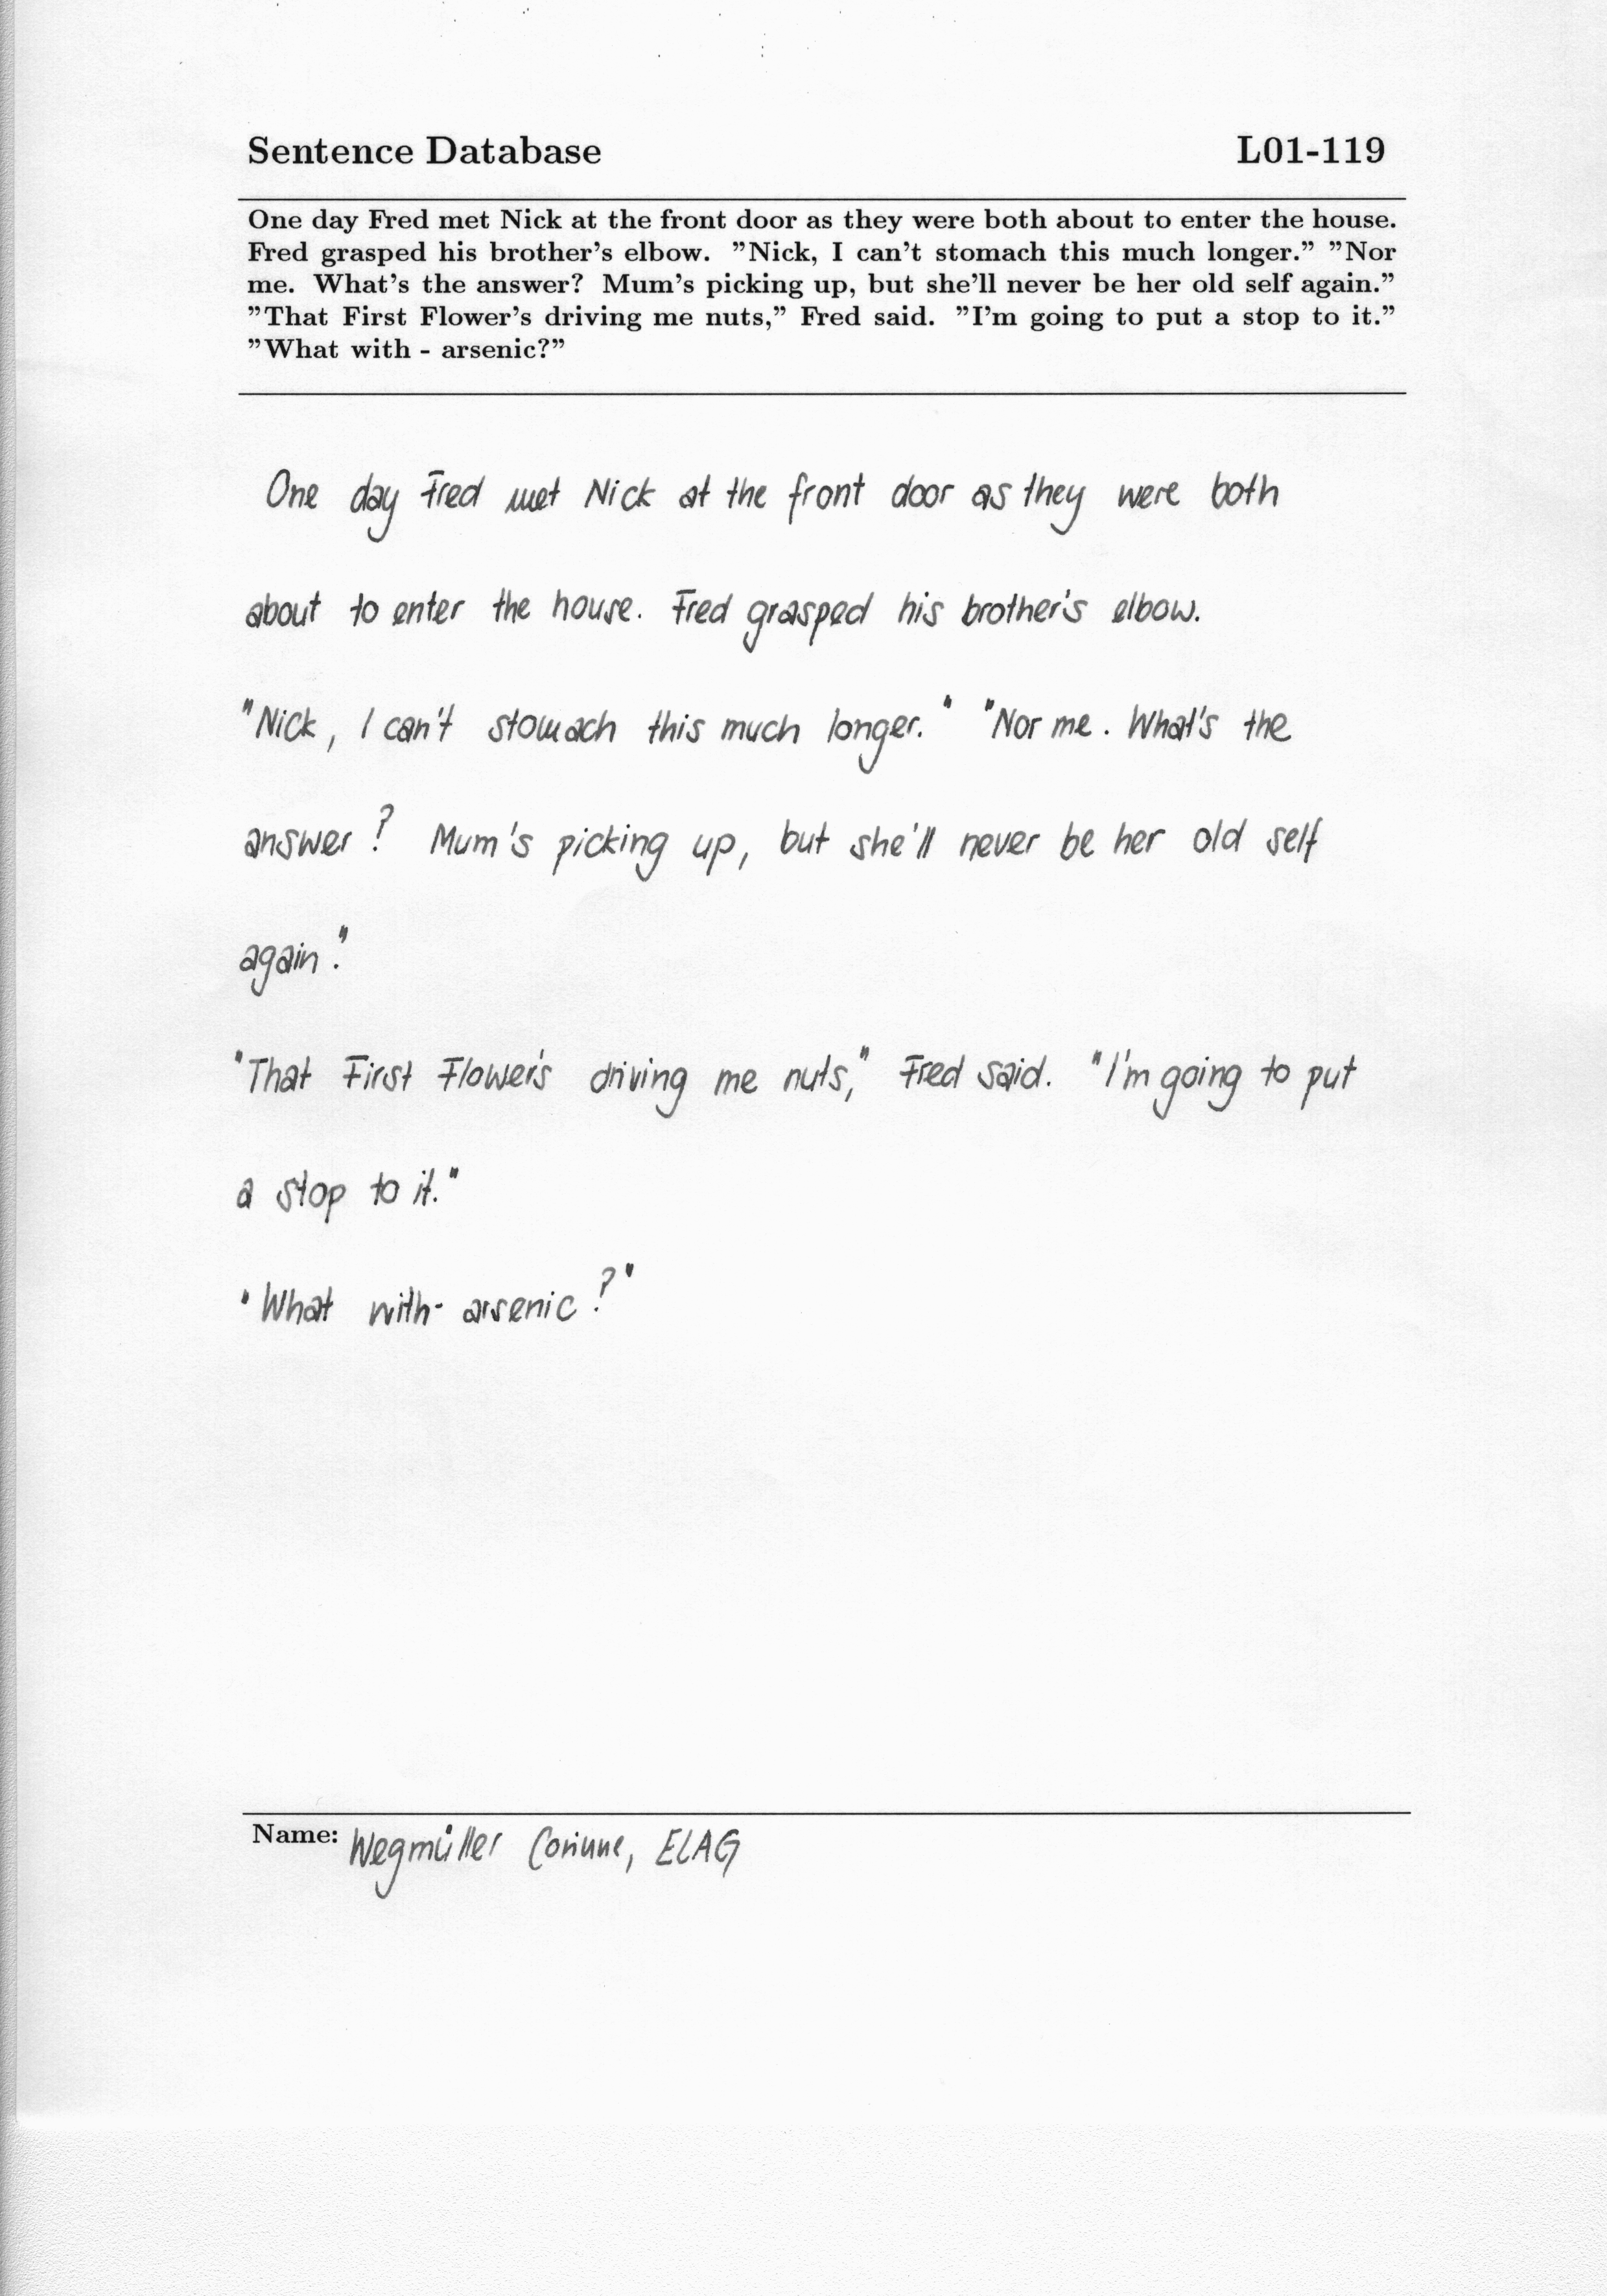 Sentence Database L01-119
One day Fred met Nick at the front door as they were both about to enter the house.
Fred grasped his brother's elbow. ”Nick, I can't stomach this much longer.” ”Nor
me. What's the answer? Mum's picking up, but she'll never be her old self again.”
”That First Flower's driving me nuts,” Fred said. ”I'm going to put a stop to it.”
”What with - arsenic?”
One day Fred met Nick at the front door as they were both
about to enter the house. Fred grasped his brother's elbow.
"Nick, I can't stomach this much longer." "Nor me. What's the
answer? Mum's picking up, but she'll never be her old self
again."
"That First Flower's driving me nuts," Fred said. "I'm going to put
a stop to it."
"What with - arsenic?"
Name: Wegmüller Corinne, ELAG